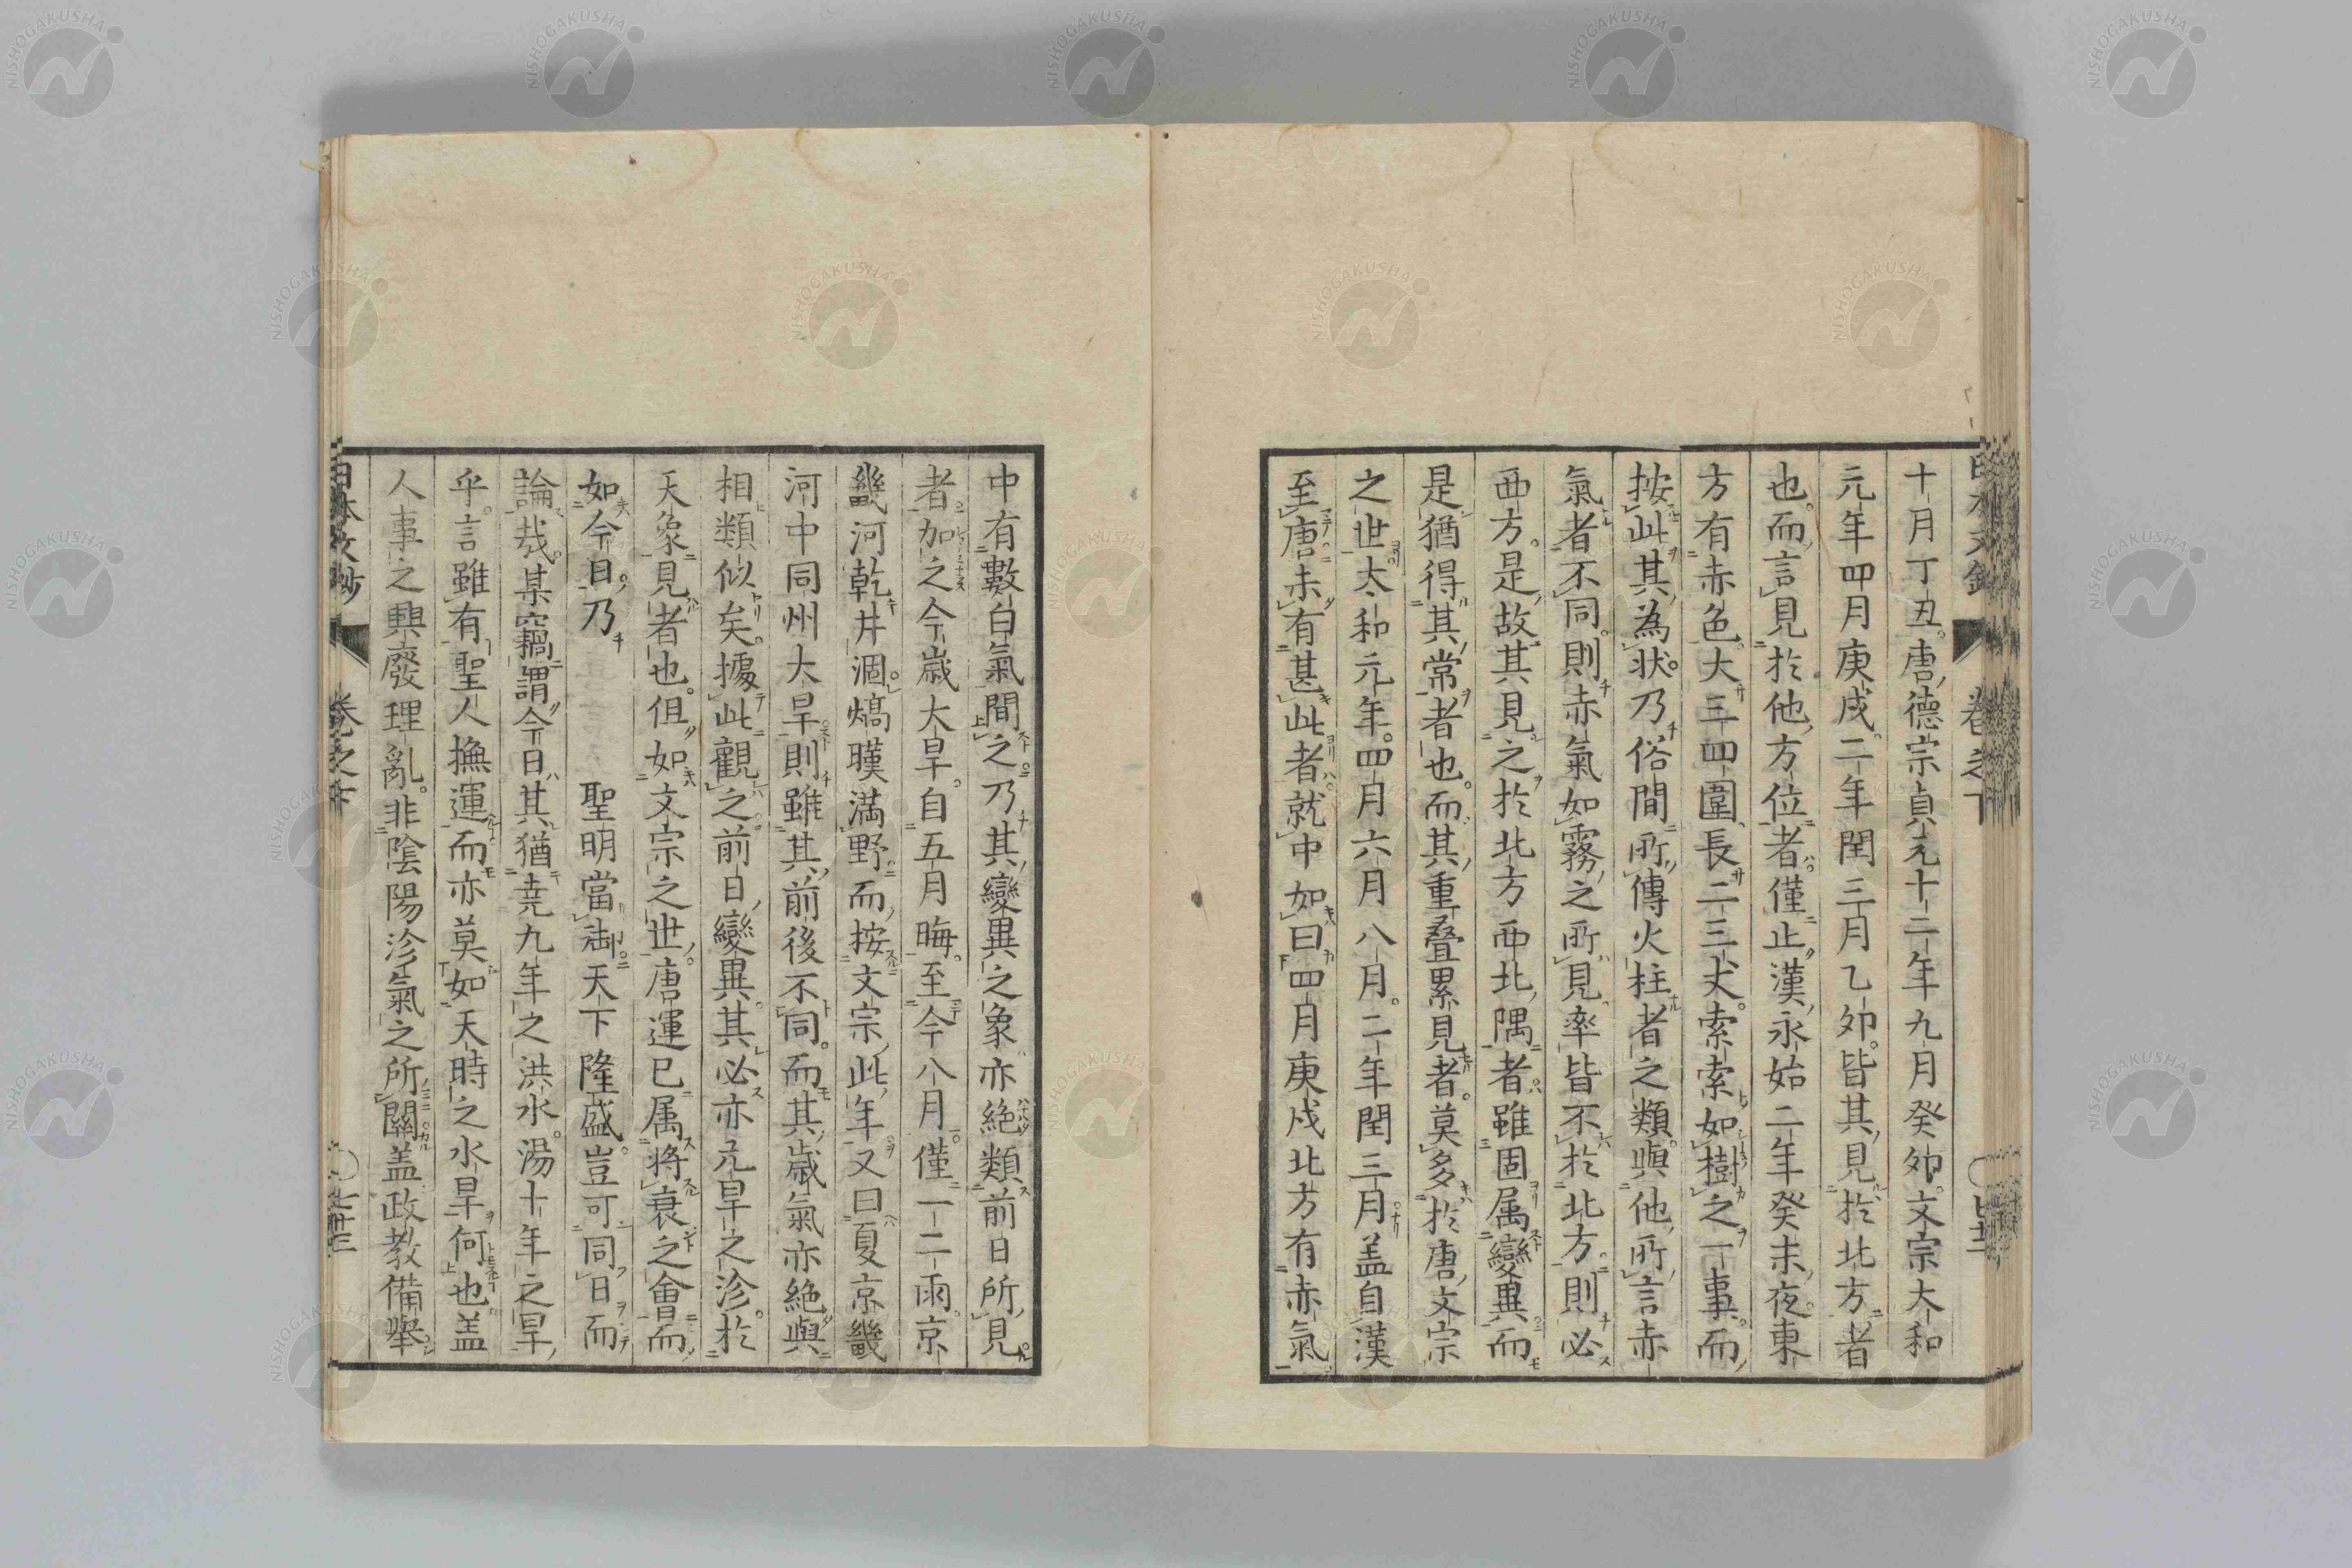 十月丁丑。唐德宗貞元十二年九月癸卯。文宗大和
元年四月庚戌。二年閏三月乙卯。皆其見於北方者
也。而言見於他方位者。僅止漢永始二年癸未夜。東
方有赤色。大三四圍、長二三丈。索索如樹之一事。而
按此其為状。乃俗間所傳火柱者之類。與他所言赤
氣者不同。則赤氣如霧之所見。率皆不於北方。則必
西方。是故其見之於北方西北隅者。雖固属變異。而
是猶得其常者也。而其重疊累見者。莫多於唐文宗
之世。太和元年。四月六月八月。二年閏三月。盖自漢
至唐。未有甚此者。就中如曰四月庚戌北方有赤氣
中有數白氣間之。乃其變異之象亦絶類前日所見
者。加之今歳大旱。自五月晦。至今八月。僅一二雨。京
畿河乾井涸。熇暵満野。而按文宗此年。又曰夏京畿
河中同州大旱。則雖其前後不同。而其歳氣亦絶與
相類似矣。據此觀之。前日變異。其必亦亢旱之沴。於
天象見者也。但如文宗之世。唐運已属將衰之會。而
如今日。乃 聖明當御。天下隆盛。豈可同日而
論哉。某竊謂今日其猶堯九年之洪水。湯十年之旱
乎。言雖有聖人撫運。而亦莫如天時之水旱何也。盖
人事之興廢理亂。非陰陽沴氣之所關。盖政教備舉
日本文鈔
卷之下